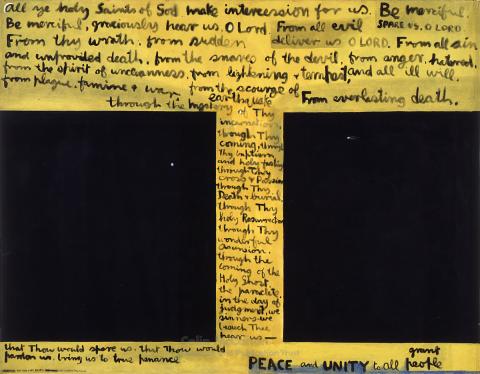 all ye holy Saints of God make intercession for us. Be merciful.
Be merciful, graciously hear us, O Lord. From all evil SPARE US. O LORD
From thy wrath. from sudden deliver us O LORD. From all sin
and unprovided death, from the snares of the devil, from anger, hatred,
from the spirit of uncleanness. from lightening + tempest, and all ill will.
from plague, famine + war, from the scourge of
earthquake From everlasting death.
through the mystery of Thy
incarnation,
through Thy
coming, through
Thy baptism
and holy fasting
through Thy
cross + Passion
through Thy
Death + burial,
through Thy
holy Resurrection
through Thy
wonderful
Ascension.
through the
coming of the
Holy Ghost
the paraclete.
in the day of
judgment, we
sinners we
beseech Thee
hear us —
that Thou would spare us. that Thou would
pardon us. bring us to true penance
grant
PEACE and UNITY to all people